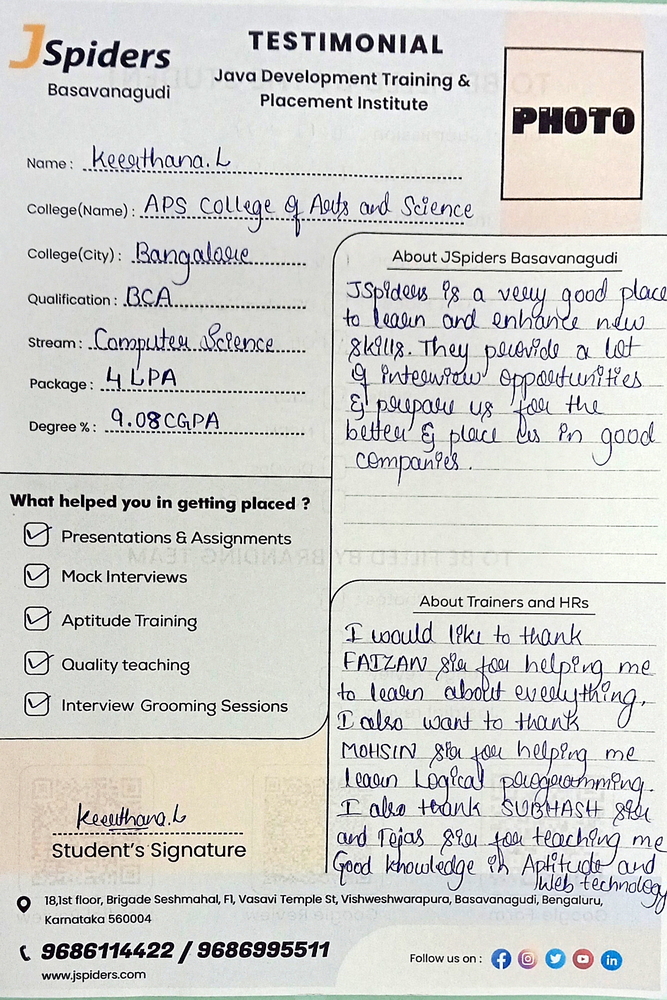 JSpiders
Basavanagudi
TESTIMONIAL
Java Development Training &
Placement Institute
PHOTO
Name : Keerthana.L
College(Name) : APS College of Arts and Science
College(City) : Bangalore
Qualification : BCA
Stream : Computer Science
Package : 4 LPA
Degree % : 9.08CGPA
What helped you in getting placed ?
Presentations & Assignments
Mock Interviews
Aptitude Training
Quality teaching
Interview Grooming Sessions
Keerthana.L
Student's Signature
About JSpiders Basavanagudi
JSpiders is a very good place
to learn and enhance new
skills. They provide a lot
of interview opportunities
& prepare us for the
better & place us in good
companies.
About Trainers and HRs
I would like to thank
FAIZAN sir for helping me
to learn about everything,
I also want to thank
MOHSIN sir for helping me
learn Logical programming.
I also thank SUBHASH sir
and Tejas sir for teaching me
Good knowledge in Aptitude and
Web technology
18,1st floor, Brigade Seshmahal, F1, Vasavi Temple St, Vishweshwarapura, Basavanagudi, Bengaluru,
Karnataka 560004
9686114422 / 9686995511
www.jspiders.com
Follow us on :